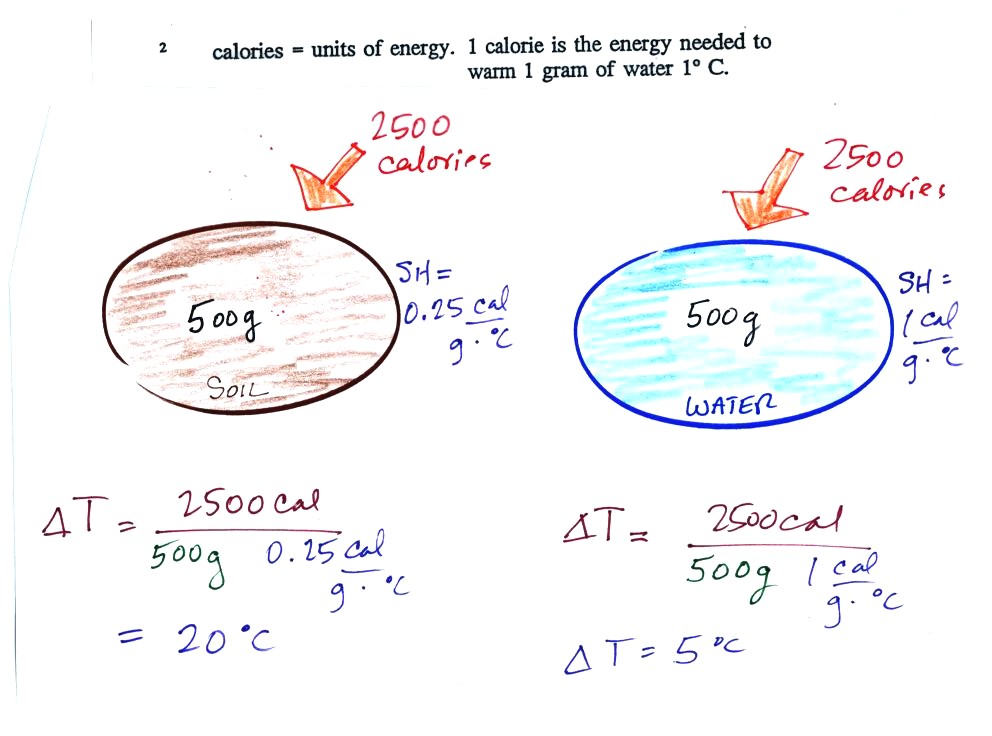 2 calories = units of energy. 1 calorie is the energy needed to
warm 1 gram of water 1° C.
2500
calories
500g
SOIL
SH =
0.25 cal
g · °C
2500
calories
500g
WATER
SH =
1 cal
g · °C
ΔT = 2500 cal
500g 0.25 cal
g · °C
= 20 °C
ΔT = 2500 cal
500g 1 cal
g · °C
ΔT = 5 °C